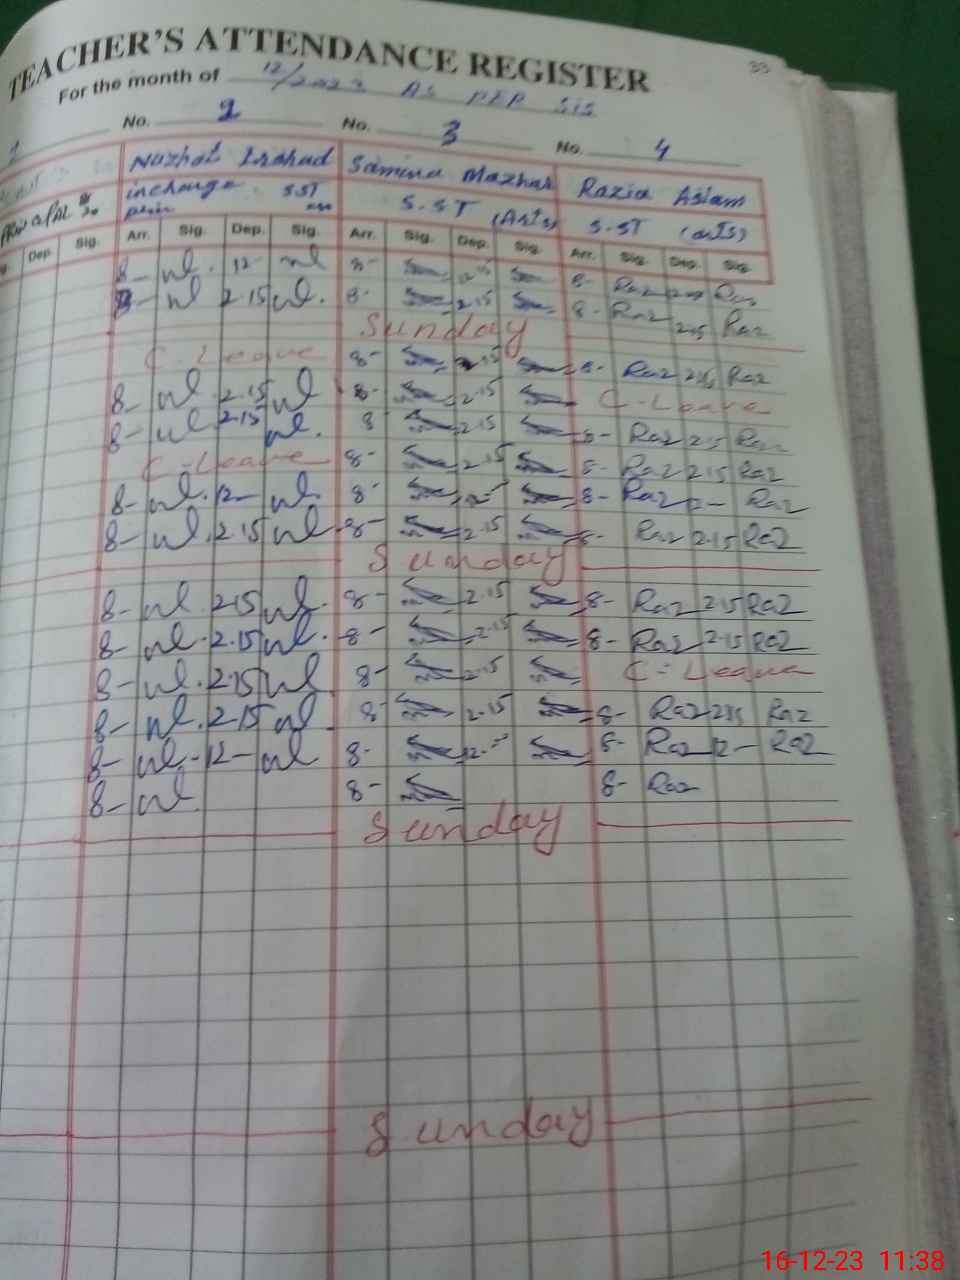 33
TEACHER'S ATTENDANCE REGISTER
For the month of 12/2023 AS PER SIS
No. 2 No. 3 No. 4
Nuzhat Irshad Samina Mazhar Razia Aslam
incharge SST S.ST (Arts) S.ST (arts)
Dep. Sig. Arr. Sig. Dep. Sig. Arr. Sig. Dep. Sig. Arr. Sig. Dep. Sig.
8- nl. 12- nl 8- 8- Raz Raz
8- nl 2.15 nl. 8- 2.15 8- Raz 2.15 Raz
Sunday
C-Leave 8- 2.15 8- Raz 2.15 Raz
8- nl. 2.15 nl 8- 2.15 C-Leave
8- nl 2.15 nl. 8 2.15 8- Raz 2.15 Raz
C-Leave 8- 2.15 8- Raz 2.15 Raz
8- nl. 12- nl. 8- 12- 8- Raz 12- Raz
8- nl. 2.15 nl 8- 2.15 8- Raz 2.15 Raz
Sunday
8- nl. 2.15 nl. 8- 2.15 8- Raz 2.15 Raz
8- nl. 2.15 nl. 8- 2.15 8- Raz 2.15 Raz
8- nl. 2.15 nl 8- 2.15 C-Leave
8- nl. 2.15 nl. 8- 2.15 8- Raz 2.15 Raz
8- nl- 12- nl 8- 12- 8- Raz 12- Raz
8- nl 8- 8- Raz
Sunday
Sunday
16-12-23 11:38